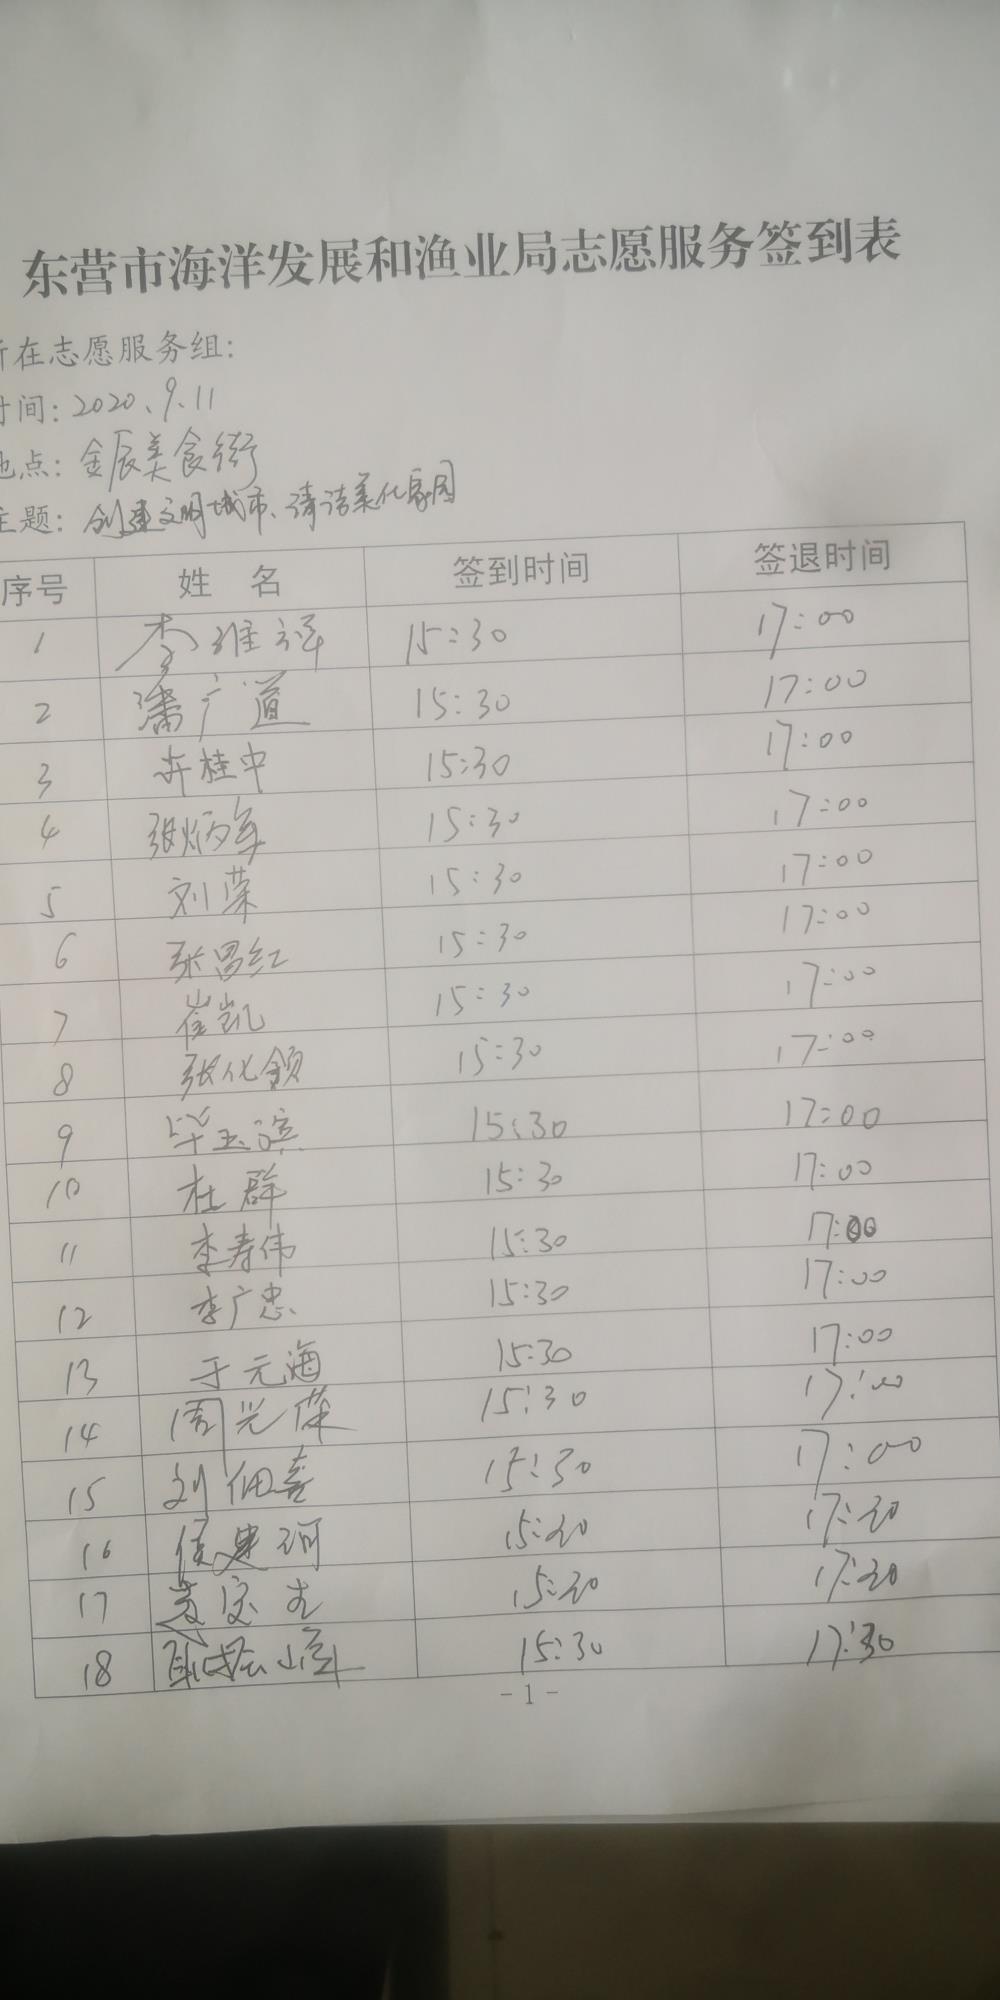 东营市海洋发展和渔业局志愿服务签到表
所在志愿服务组:
时间: 2020.9.11
地点: 金辰美食街
主题: 创建文明城市、清洁美化家园
序号 姓 名 签到时间 签退时间
1 李維祥 15:30 17:00
2 潘广道 15:30 17:00
3 卉桂中 15:30 17:00
4 张炳军 15:30 17:00
5 刘荣 15:30 17:00
6 张昌红 15:30 17:00
7 崔凯 15:30 17:00
8 张化领 15:30 17:00
9 毕玉滨 15:30 17:00
10 杜群 15:30 17:00
11 李寿伟 15:30 17:00
12 李广忠 15:30 17:00
13 于元海 15:30 17:00
14 周光荣 15:30 17:00
15 刘佃喜 15:30 17:00
16 侯建河 15:30 17:30
17 15:30 17:30
18 15:30 17:30
- 1 -